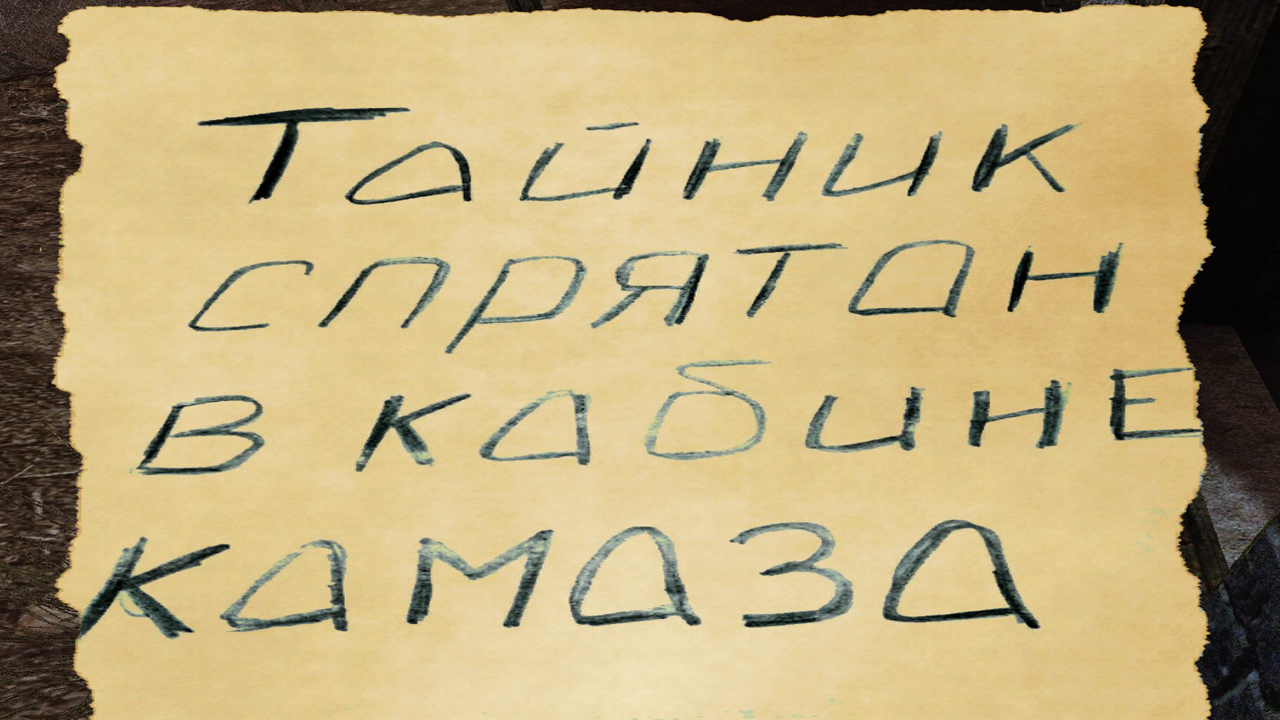 Тайник
спрятан
в кабине
камаза